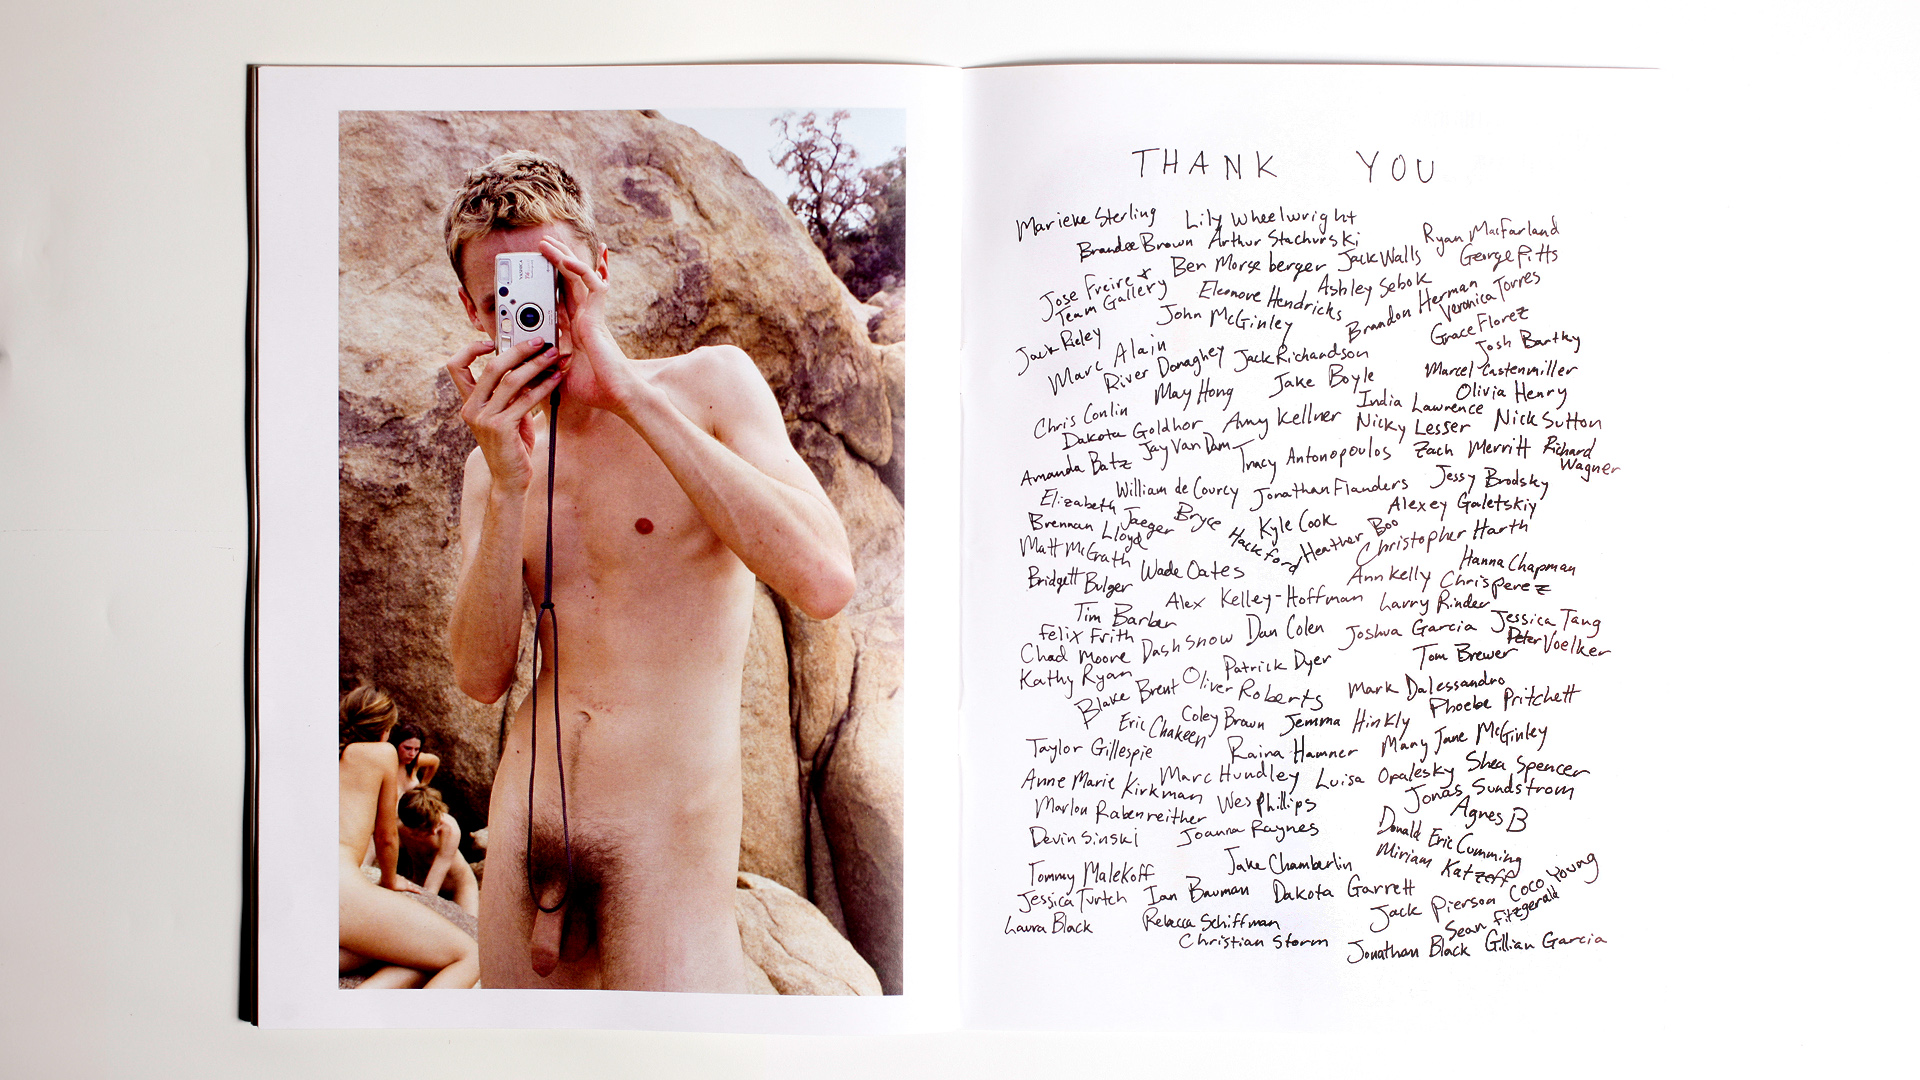 THANK YOU
Marieke Sterling Lily Wheelwright
Brandee Brown Arthur Stachurski Ryan MacFarland
Jose Freire & Team Gallery Ben Morseberger Jack Walls George Pitts
Eleonore Hendricks Ashley Sebok
John McGinley Brandon Herman Veronica Torres
Jack Reley Grace Florez
Marc Alain Josh Bartky
River Donaghey Jack Richardson
May Hong Jake Boyle Marcel Castenmiller
Chris Conlin India Lawrence Olivia Henry
Dakota Goldhor Amy Kellner Nicky Lesser Nick Sutton
Amanda Batz Jay Van Dam Tracy Antonopoulos Zach Merritt Richard Wagner
Elizabeth Jaeger William de Courcy Jonathan Flanders Jessy Brodsky
Brennan Lloyd Bryce Hackford Kyle Cook Alexey Galetskiy
Matt McGrath Heather Boo Christopher Harth
Bridgett Bulger Wade Oates Ann Kelly Hanna Chapman
Chris Perez
Tim Barber Alex Kelley-Hoffman Larry Rinder
Felix Frith Dan Colen Joshua Garcia Jessica Tang
Chad Moore Dash Snow Peter Voelker
Kathy Ryan Patrick Dyer Tom Brewer
Blake Brent Oliver Roberts Mark Dalessandro
Eric Chakeen Coley Brown Jemma Hinkly Phoebe Pritchett
Taylor Gillespie Raina Hamner Mary Jane McGinley
Anne Marie Kirkman Marc Hundley Luisa Opalesky Shea Spencer
Marlon Rabenreither Wes Phillips Jonas Sundstrom
Devin Sinski Joanna Raynes Agnes B
Donald Eric Cumming
Tommy Malekoff Jake Chamberlin Miriam Katzeff
Jessica Turtch Ian Bauman Dakota Garrett Coco Young
Laura Black Rebecca Schiffman Jack Pierson Sean Fitzgerald
Christian Storm Jonathan Black Gillian Garcia